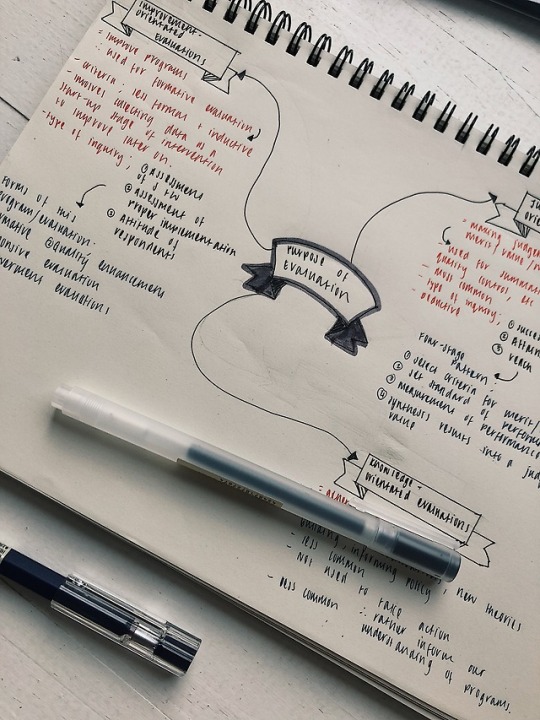 improvement-
orientated
evaluations
- improve programs
∴ used for formative evaluation
- criteria: less formal + inductive
- involves collecting data as a
start-up stage of intervention
to improve later on.
- type of inquiry:
① assessment
of s
② assessment of
proper implementation
③ attitude of
respondents
forms of this
program/evaluation:
② quality enhancement
evaluation
evaluations
purpose of
evaluation
- making
merit/value/
used for
quality control, etc
- most common
- type of inquiry;
deductive
①
②
③ reach
Four-stage
pattern:
① select criteria for merit/
② set standard of
③ measurement of performance
④ synthesis results into a
value
knowledge-
orientated evaluations
informing policy, new theories
- less common
not used to take action
- less common ∴ rather inform our
understanding of programs.